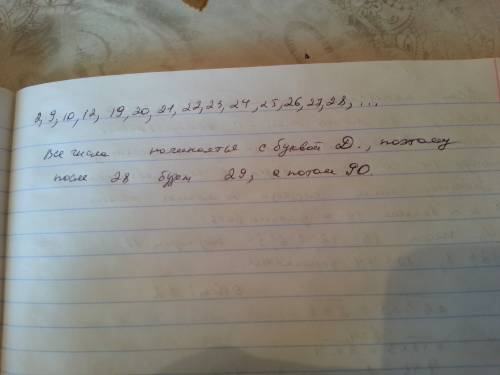 2, 9, 10, 12, 19, 20, 21, 22, 23, 24, 25, 26, 27, 28, ...
Все числа начинаются с буквой Д., поэтому
после 28 будет 29, а потом 90.